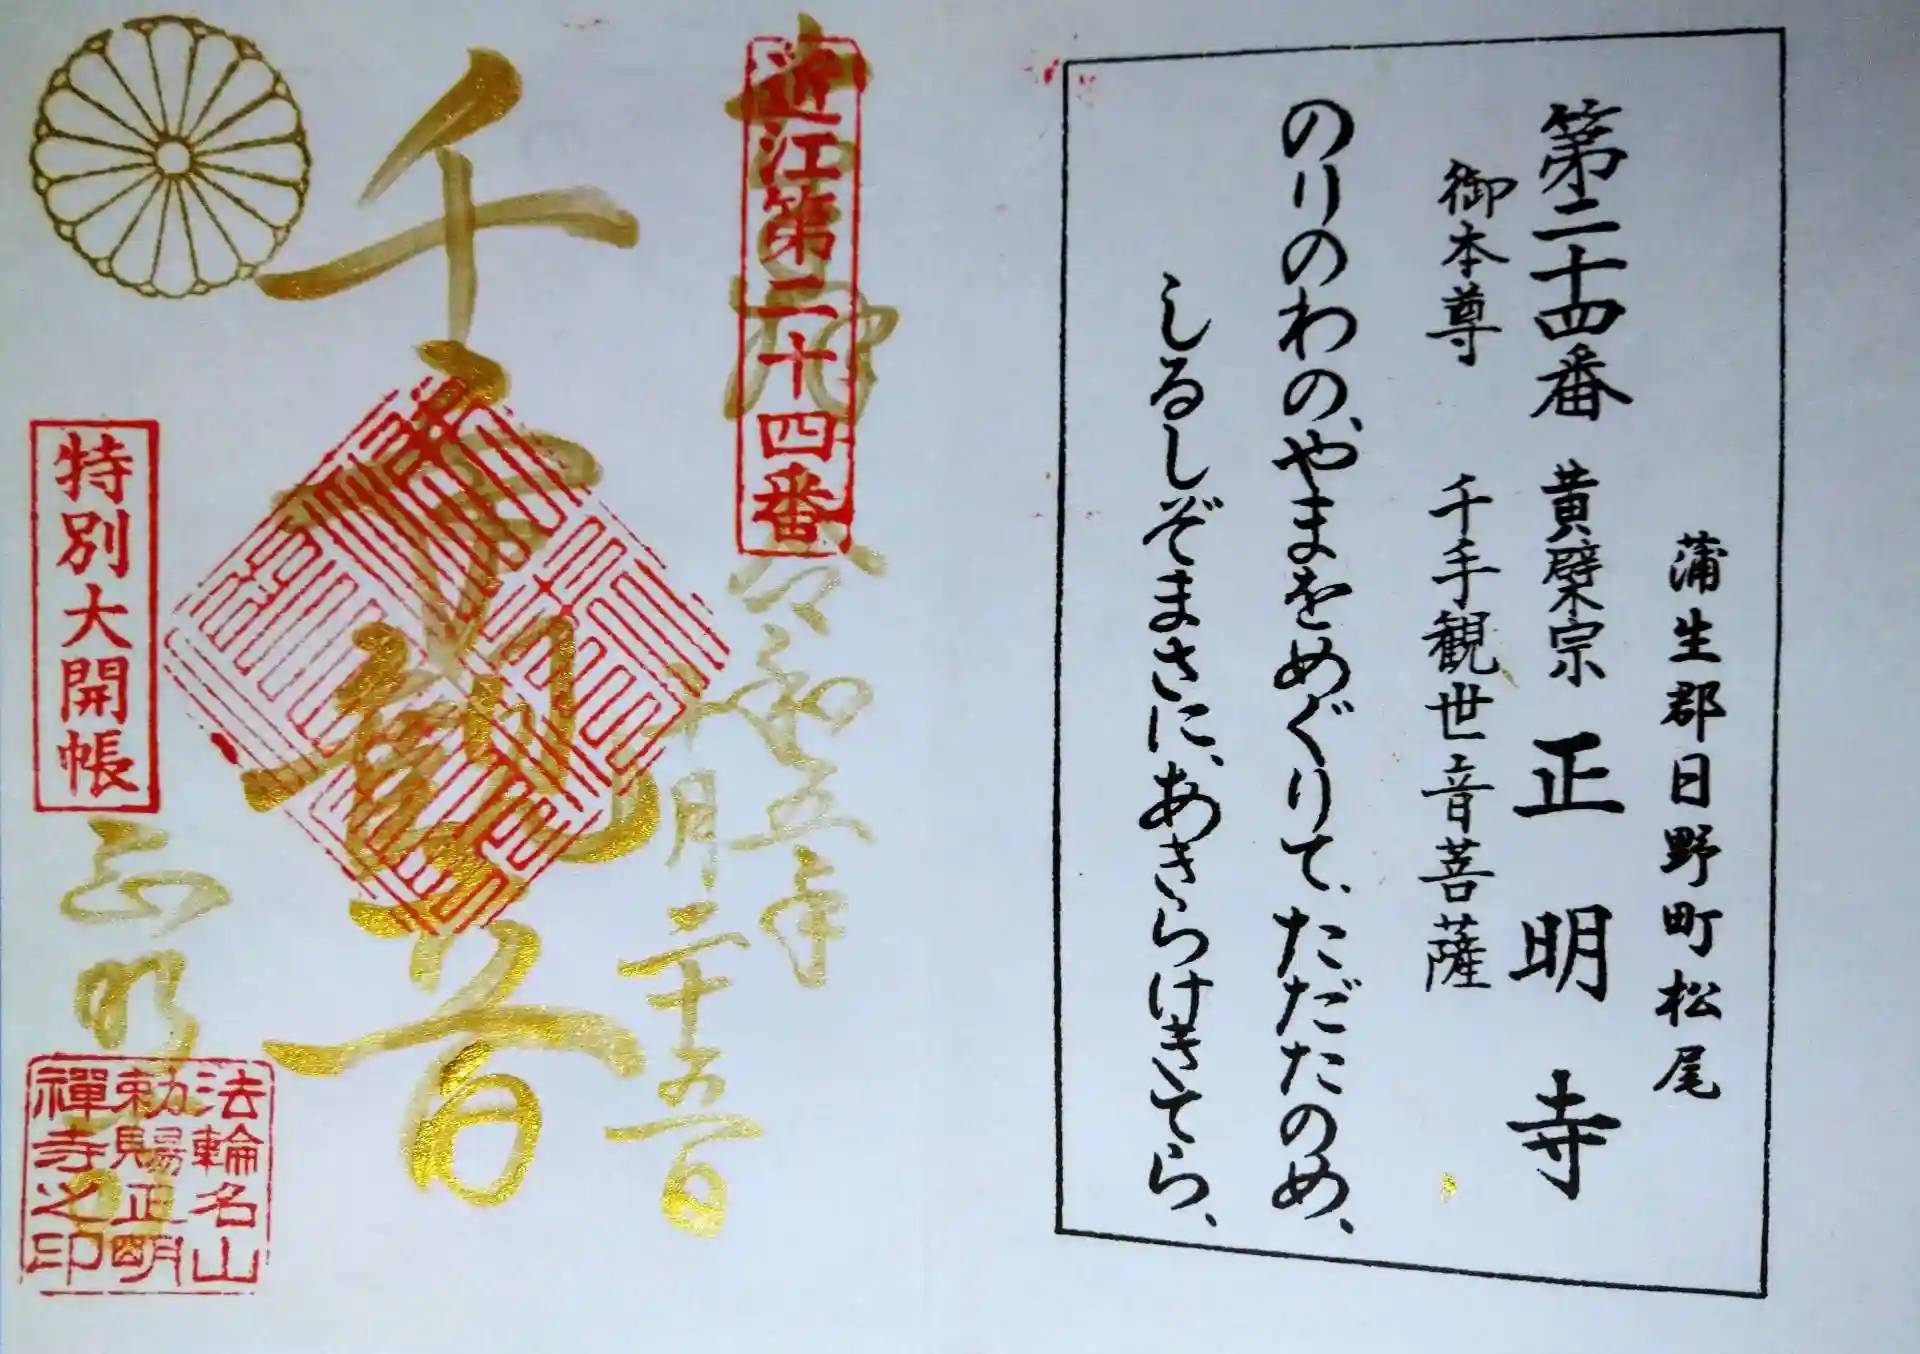 蒲生郡日野町松尾
第二十四番 黄檗宗 正明寺
御本尊 千手観世音菩薩
のりのわの、やまをめぐりて、ただたのめ、
しるしぞまさに、あきらけきてら、
近江第二十四番
令和五年
十月二十五日
千手観音
特別大開帳
正明
法輪名山
勅賜正明
禪寺之印